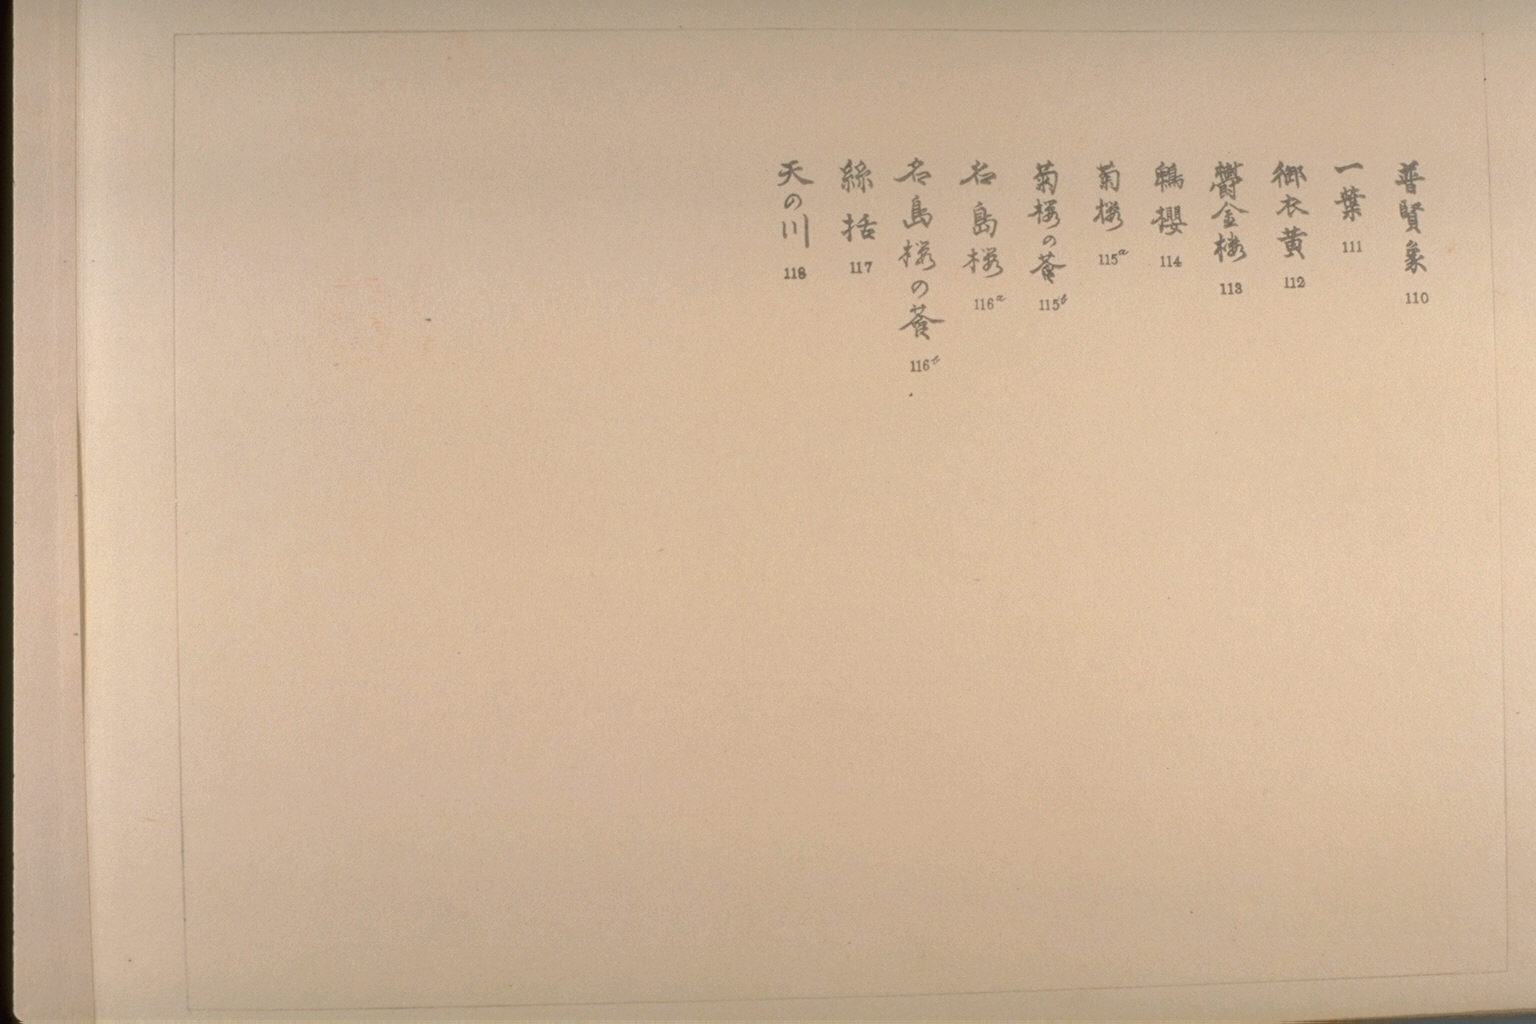 普賢象 110
一葉 111
御衣黄 112
欝金桜 113
鵯櫻 114
菊桜 115a
菊桜の莟 115b
名島桜 116a
名島桜の莟 116b
絲括 117
天の川 118